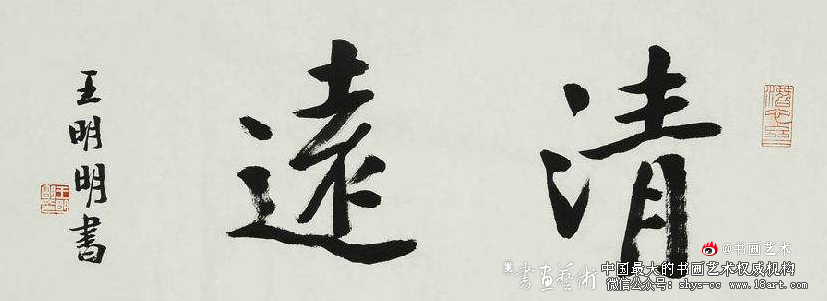 清遠
王明明書
@书画艺术
書畫藝術
中国最大的书画艺术权威机构
微信公众号：shys-cc www.18art.com